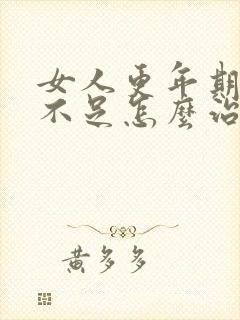 女人更年期
不足怎麼治
黃多多